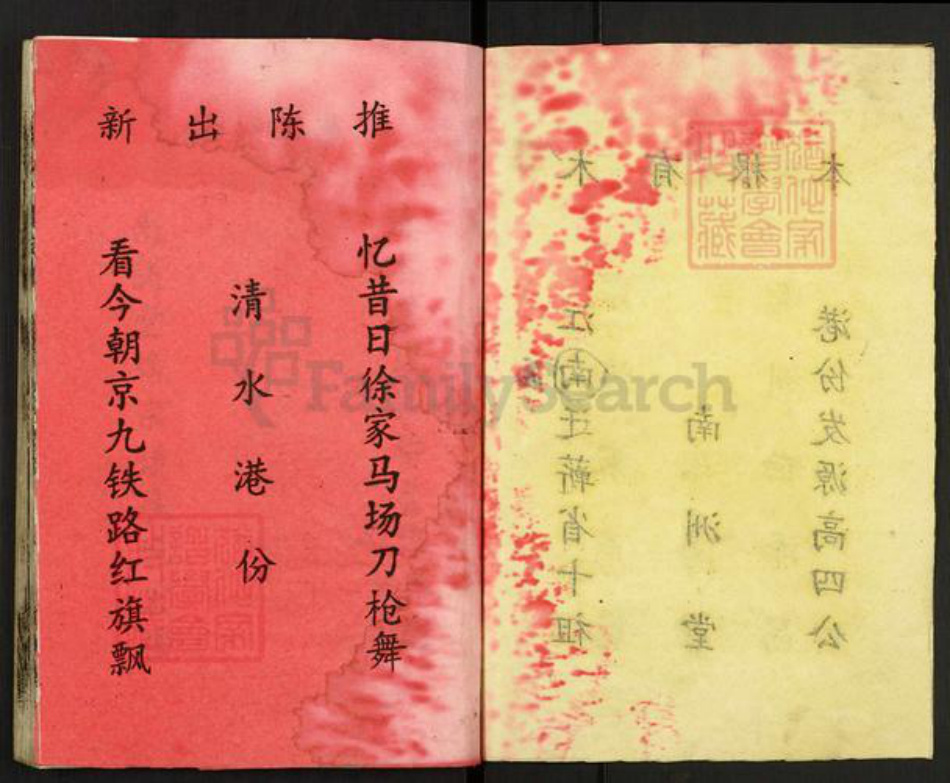 木有根本
江南迁蕲省十祖
南洲堂
港份发源高四公
推陈出新
忆昔日徐家马场刀枪舞
清水港份
看今朝京九铁路红旗飘
FamilySearch